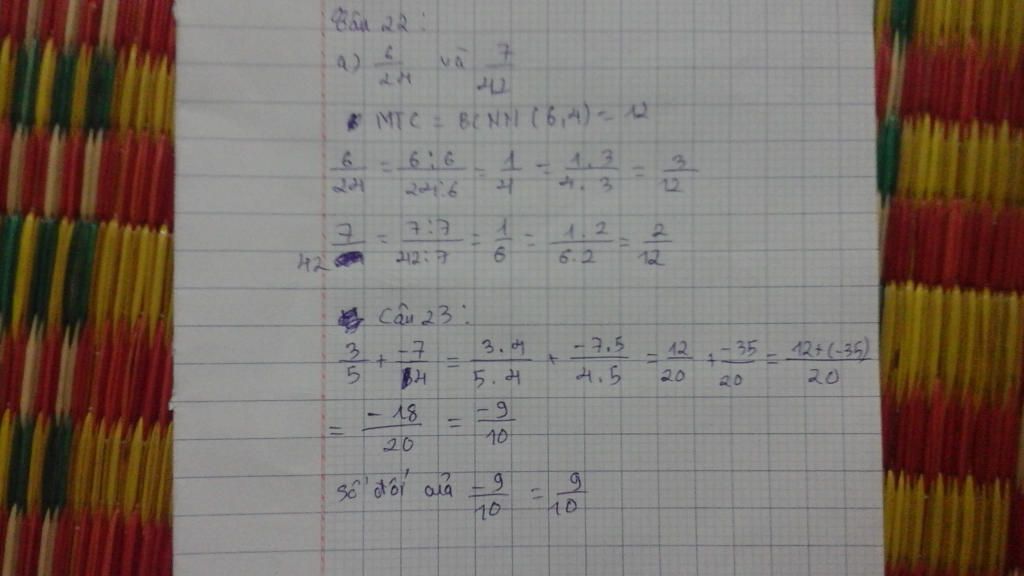 Câu 22:
a) 6/24 và 7/42
MTC = BCNN (6,4) = 12
6/24 = 6:6/24:6 = 1/4 = 1.3/4.3 = 3/12
7/42 = 7:7/42:7 = 1/6 = 1.2/6.2 = 2/12
Câu 23:
3/5 + -7/4 = 3.4/5.4 + -7.5/4.5 = 12/20 + -35/20 = 12+(-35)/20
= -18/20 = -9/10
Số đối của -9/10 = 9/10